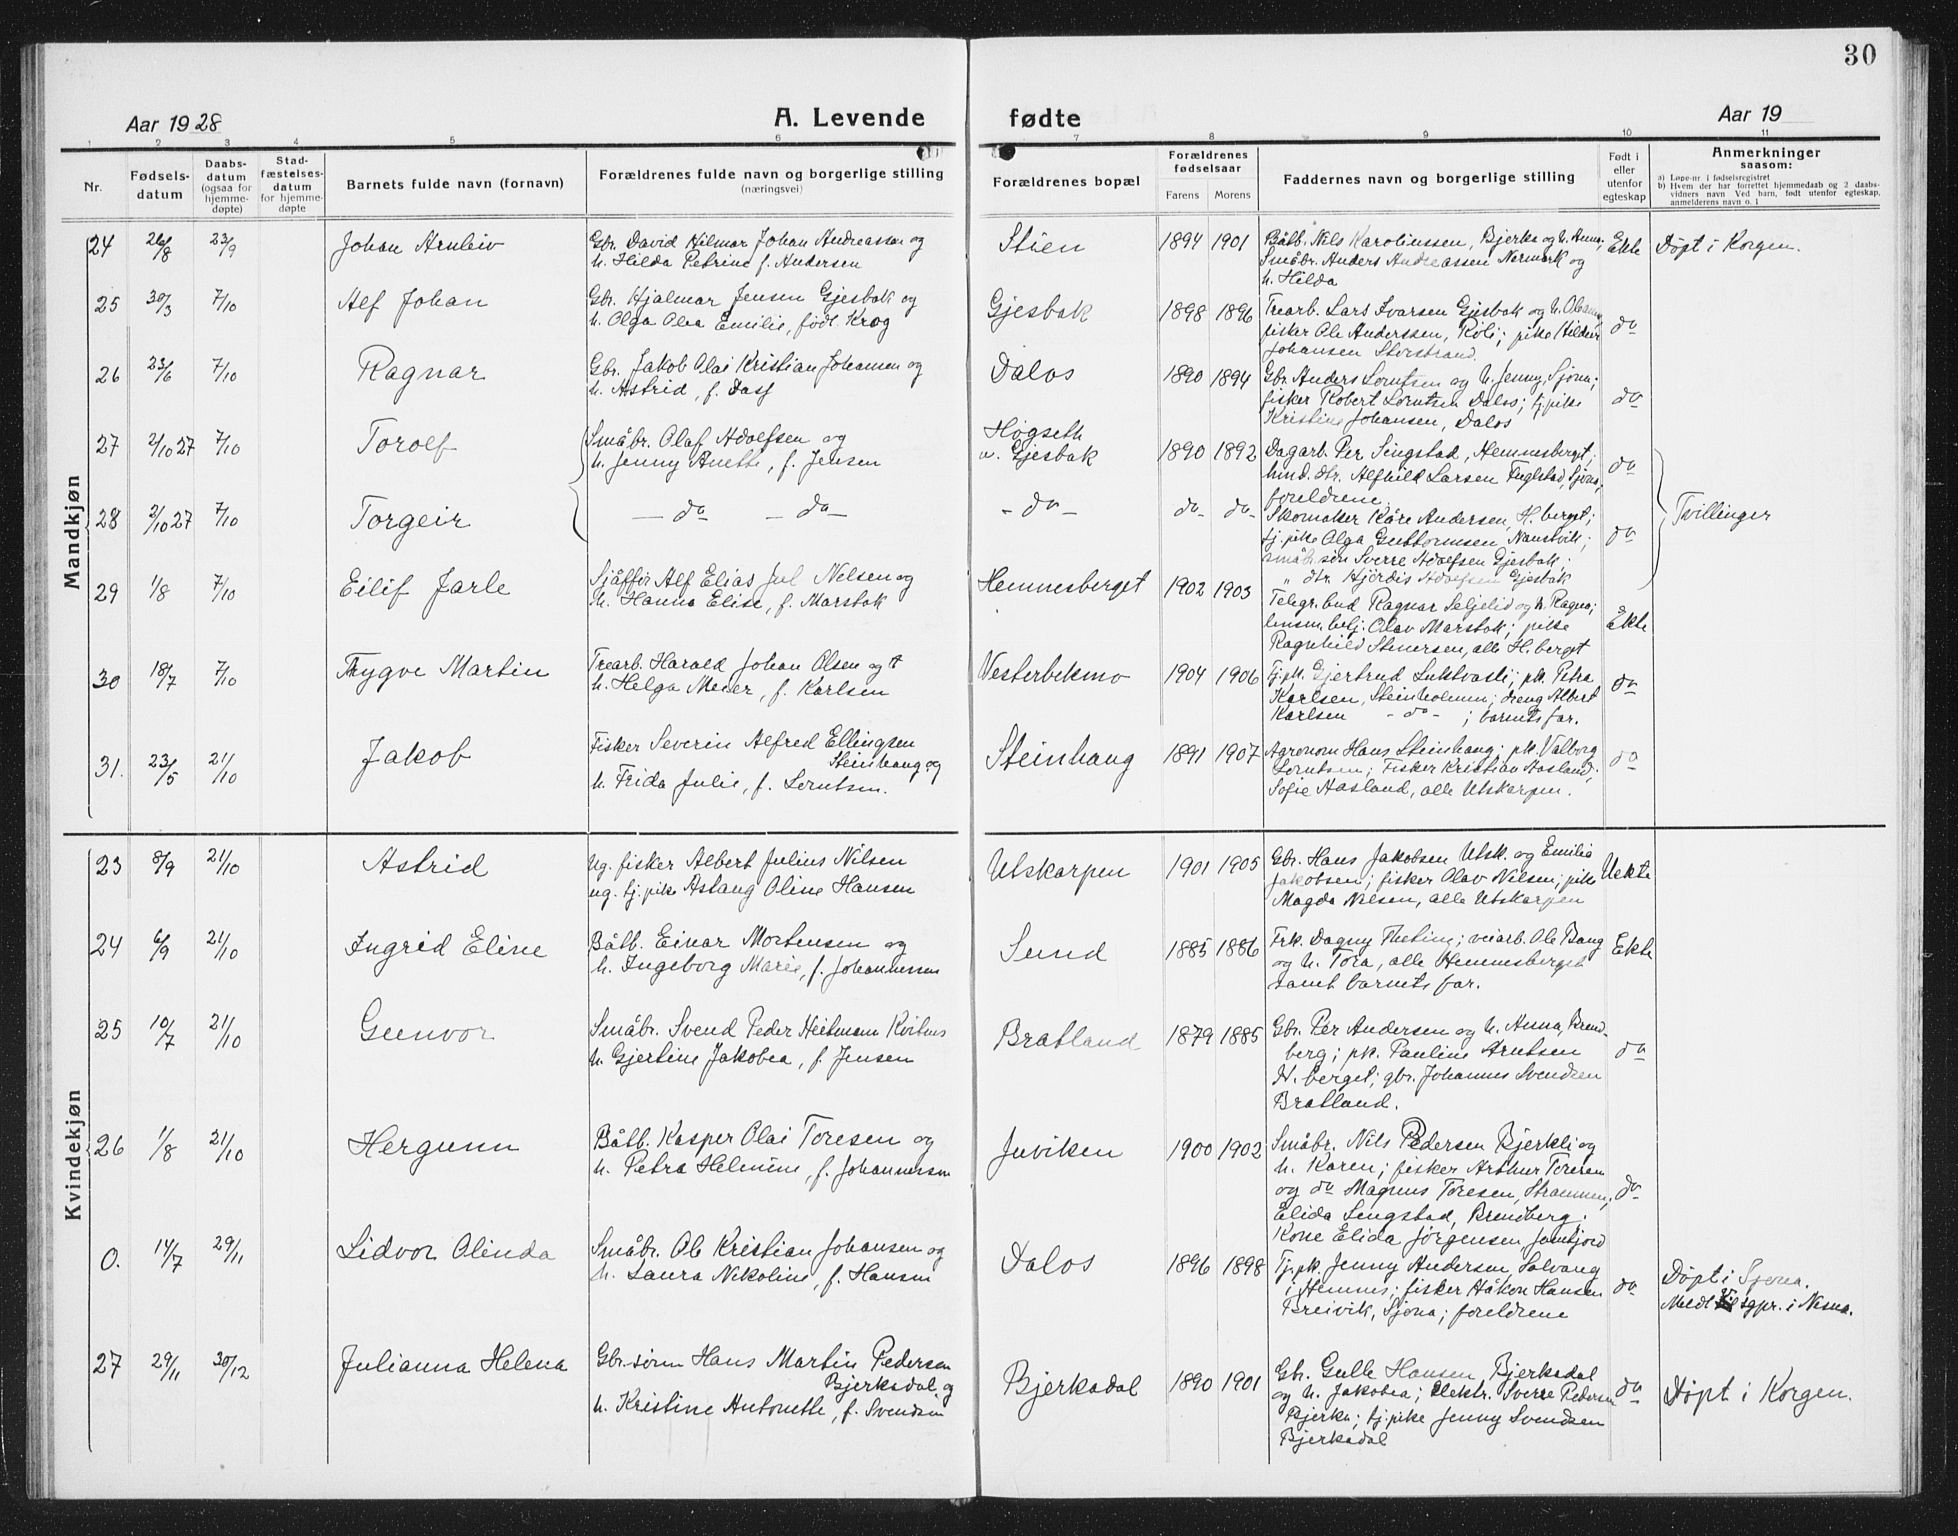 30
Aar 1928 A. Levende fødte Aar 19
1 2 3 4 5 6 7 8 9 10 11
Nr. Fødsels-datum Daabs-datum (ogsaa for hjemme-døpte) Stad-fæstelses-datum for hjemme-døpte Barnets fulde navn (fornavn) Forældrenes fulde navn og borgerlige stilling (næringsvei) Forældrenes bopæl Forældrenes fødselsaar Farens Morens Faddernes navn og borgerlige stilling Født i eller utenfor egteskap Anmerkninger saasom:
a) Løpe-nr. i fødselsregistret
b) Hvem der har forrettet hjemmedaab og 2 daabs-vidners navn Ved barn, født utenfor egteskap, anmelderens navn o. l
Mandkjøn
24 26/8 23/9 Johan Arnleiv Gbr. David Hilmar Johan Andreassen og Stien 1894 1901 Båtb. Nils Karolinssen, Bjerka og h. Anna; Ekte Døpt i Korgen.
h. Hilda Petrine f. Andersen Småbr. Anders Andreassen Nermark og
h. Hilda
25 30/3 7/10 Alf Johan Gbr. Hjalmar Jensen Gjesbak og Gjesbak 1898 1896 Trearb. Lars Ivarsen Gjesbak og h. do
h. Olga Olea Emilie, født Krog fisker Ole Anderssen, Röli; pike Hildur
Johansen Storstrand.
26 23/6 7/10 Ragnar Gbr. Jakob Olai Kristian Johansen og Dalos 1890 1894 Gbr. Anders Lorntsen og h. Jenny, Sjona; do
h. Astrid, f. Dass fisker Robert Lorntsen Dalos; tj. pike
Kristine Johansen, Dalos
27 2/10 27 7/10 Torolf Småbr. Olaf Adolfsen og Høgseth 1890 1892 Dagarb. Per Singstad, Hemnesberget; do
h. Jenny Anette, f. Jensen u. Gjesbak hmd. dtr. Alfhild Larsen Fuglstad, Sjona,
foreldrene.
28 2/10 27 7/10 Torgeir — do — do — - do - do do Skomaker Kåre Andersen, H.berget; do Tvillinger
tj. pike Olga Guttormsen Naustvik;
småb. søn Sverre Adolfsen Gjesbak;
" dtr. Hjördis Adolfsen Gjesbak
29 1/8 7/10 Eilif Jarle Sjåffør Alf Elias Jul Nelsen og Hemnesberget 1902 1903 Telegr. bud Ragnar Seljelid og h. Ragna; Ekte
h. Hanna Elise, f. Marsbak lensm. betj. Olav Marsbak; pike
Ragnhild Steinersen, alle H.berget
30 18/7 7/10 Trygve Martin Trearb. Harald Johan Olsen og Vesterbekmo 1904 1906 Tj. pk. Gjertrud Luktvasli; pk. Petra do
h. Helga Meier, f. Karlsen Karlsen, Steinholmen; dreng Albert
Karlsen - do - ; barnets far.
31. 23/5 21/10 Jakob Fisker Severin Alfred Ellingsen Steinhaug 1891 1907 Agronom Hans Steinhaug; pk. Valborg do
Steinhaug og Lorntsen; Fisker Kristian Aasland;
h. Frida Julie, f. Lorntsen. Sofie Aasland, alle Utskarpen.
Kvindekjøn
23 8/9 21/10 Astrid Ug. fisker Albert Julius Nilsen Utskarpen 1901 1905 Gbr. Hans Jakobsen Utsk. og Emilie Uekte
ug. tj. pike Aslaug Oline Hansen Jakobsen; fisker Olav Nilsen; pike
Magda Nilsen, alle Utskarpen
24 6/9 21/10 Ingrid Eline Båtb. Einar Mortensen og Sund 1885 1886 Frk. Dagny Theting; veiarb. Ole Bang Ekte
h. Ingeborg Marie, f. Johannessen og h. Tora, alle Hemnesberget
samt barnets far.
25 10/7 21/10 Gunvor Småbr. Svend Peder Heitmann Bratland 1879 1885 Gbr. Per Andersen og h. Anna, Brend- do
h. Gjertine Jakobea, f. Jensen berg; pk. Pauline Arntsen
H.berget; gbr. Johannes Svendsen
Bratland.
26 1/8 21/10 Hergunn Båtb. Kasper Olai Toresen og Juviken 1900 1902 Småbr. Nils Pedersen Bjerkli og do
h. Petra Helmine, f. Johannessen h. Karen; fisker Arthur Toresen
og do Magnus Toresen, Straumen;
Elida Singstad, Brendberg;
Kone Elida Jörgensen
0. 14/7 29/11 Lidvor Olinda Småbr. Ole Kristian Johansen og Dalos 1896 1898 Tj. pk. Jenny Andersen Solvang do Døpt i Sjona.
h. Laura Nikoline, f. Hansen i Hemnes; fisker Håkon Hansen Meldt sgpr. i Nesna.
Breivik, Sjona; foreldrene
27 29/11 30/12 Julianna Helena Gbr.søn Hans Martin Pedersen Bjerkadal 1890 1901 Gb. Gulle Hansen, Bjerkadal do Døpt i Korgen.
Bjerkadal, og og h. Jakobea; elektr. Sverre Pedersen
h. Kristine Antonette, f. Svendsen Bjerka; tj. pike Jenny Svendsen
Bjerkadal